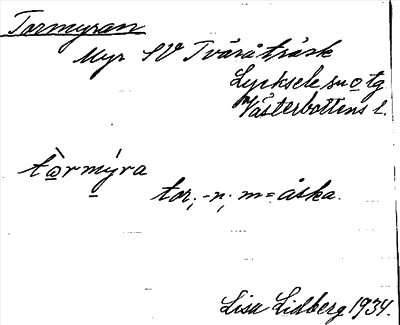 Tormyran
Myr SV Tvåråträsk
Lycksele sn o tg
Västerbottens l.
tòrmýra
tor, -n, m = åska.
Lisa Lidberg 1934.